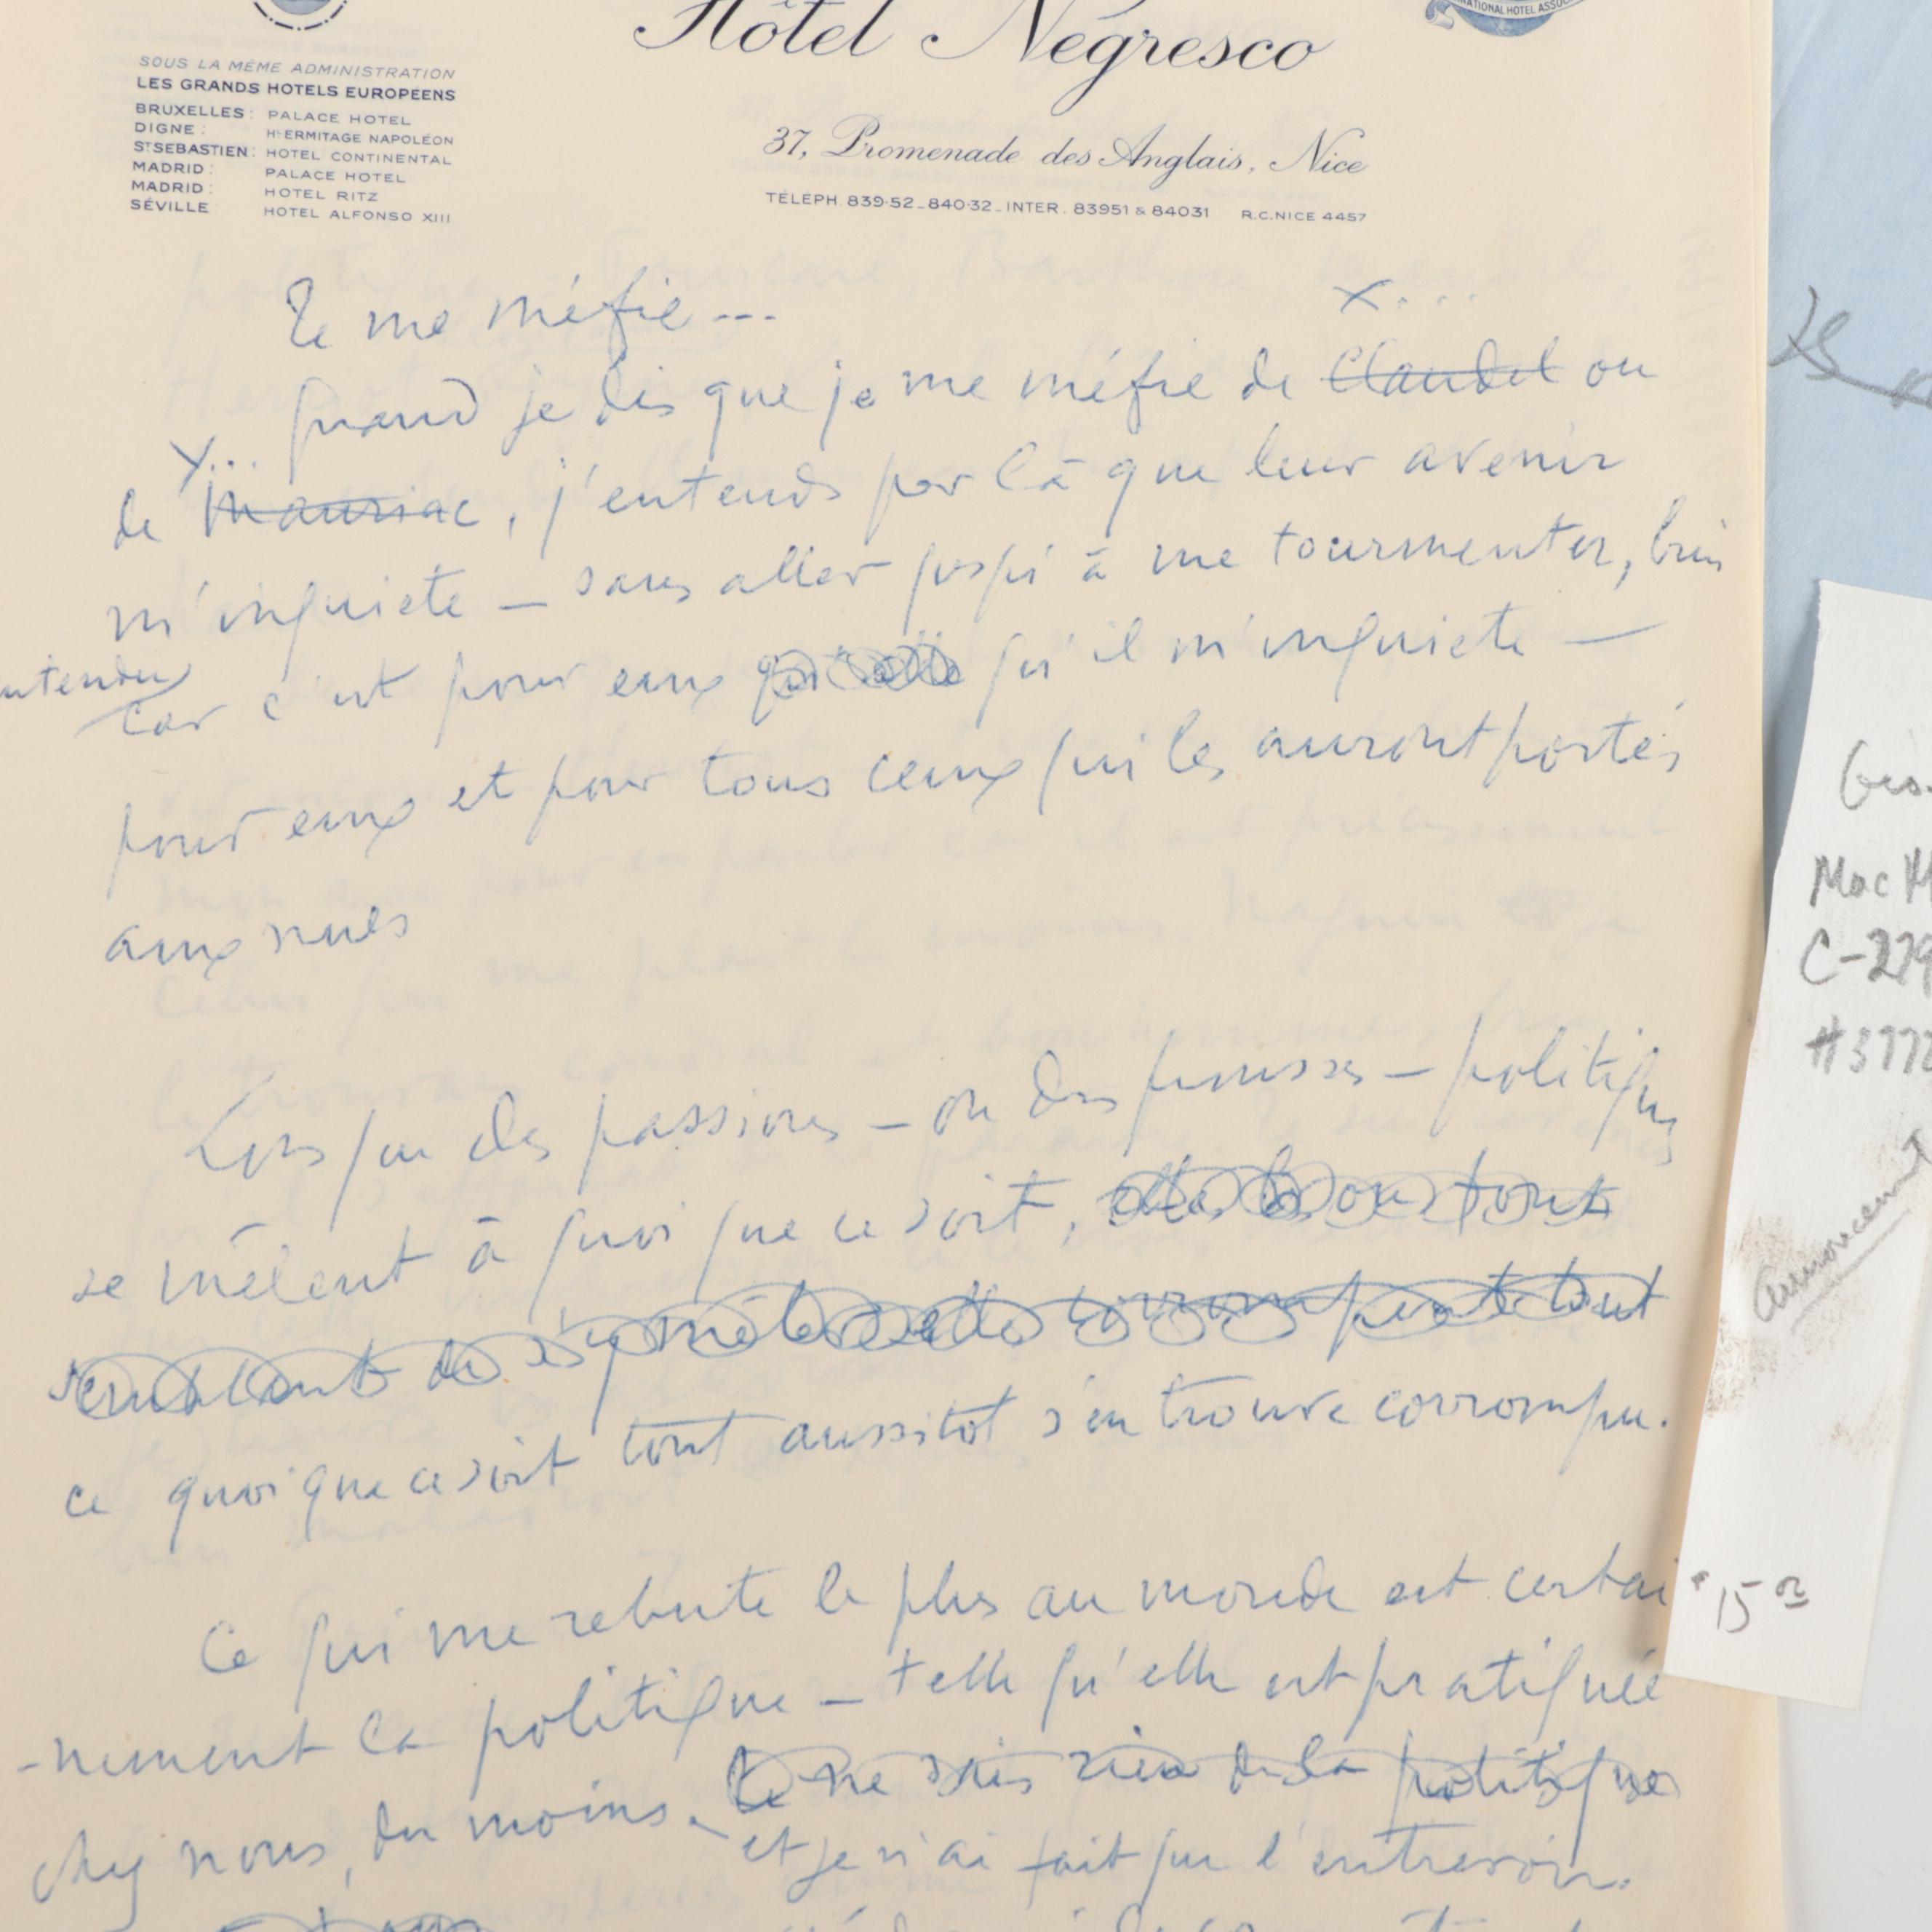 NATIONAL HOTEL ASSOC
Hôtel Negresco
SOUS LA MÊME ADMINISTRATION
LES GRANDS HOTELS EUROPÉENS
BRUXELLES : PALACE HOTEL
DIGNE : HL ERMITAGE NAPOLÉON
ST SEBASTIEN : HOTEL CONTINENTAL
MADRID : PALACE HOTEL
MADRID : HOTEL RITZ
SÉVILLE HOTEL ALFONSO XIII
37, Promenade des Anglais, Nice
TÉLÉPH. 839-52_840-32_INTER. 83951 & 84031 R.C. NICE 4457
Je me méfie ---
X...
Quand je dis que je me méfie de Claudel ou
Y...
de Mauriac, j'entends par là que leur avenir
m'inquiete — sans aller jusqu'à me tourmenter, bien
entendu
car c'est pour eux qu'il m'inquiete —
pour eux et pour tous ceux qui les auront portés
aux nues
Lorsque des passions — ou des pousses — politiques
se mêlent à quoi que ce soit, elles
semblant de s'y mêler elles corrompent tout
ce quoi que ce soit tout aussitot s'en trouve corrompu.
Ce qui me rebute le plus au monde est certai
-nement la politique — telle qu'elle est pratiquée
chez nous, du moins. Je ne sais rien de la politique
et je n'ai fait que l'entrevoir.
Geo.
Mac M
C-279
#3772
announcement
$15 00